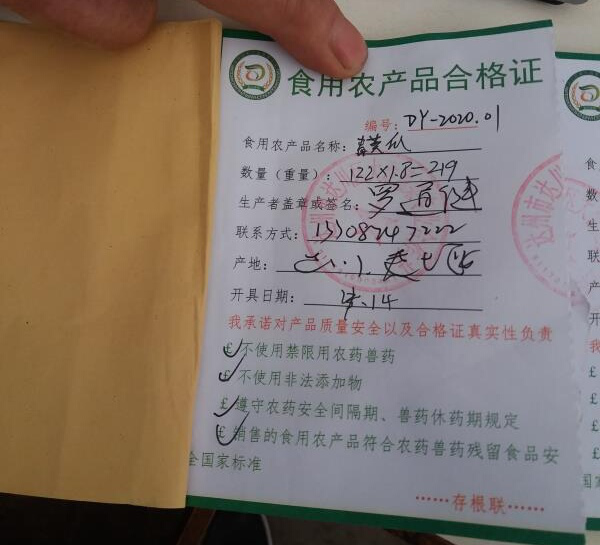 食用农产品合格证
编号: DY-2020.01
食用农产品名称: 黄瓜
数量(重量): 122×1.8=219
生产者盖章或签名: 罗道健
联系方式: 15508247222
产地:
开具日期: 4.14
我承诺对产品质量安全以及合格证真实性负责
£不使用禁限用农药兽药
£不使用非法添加物
£遵守农药安全间隔期、兽药休药期规定
£销售的食用农产品符合农药兽药残留食品安
全国家标准
······存根联······